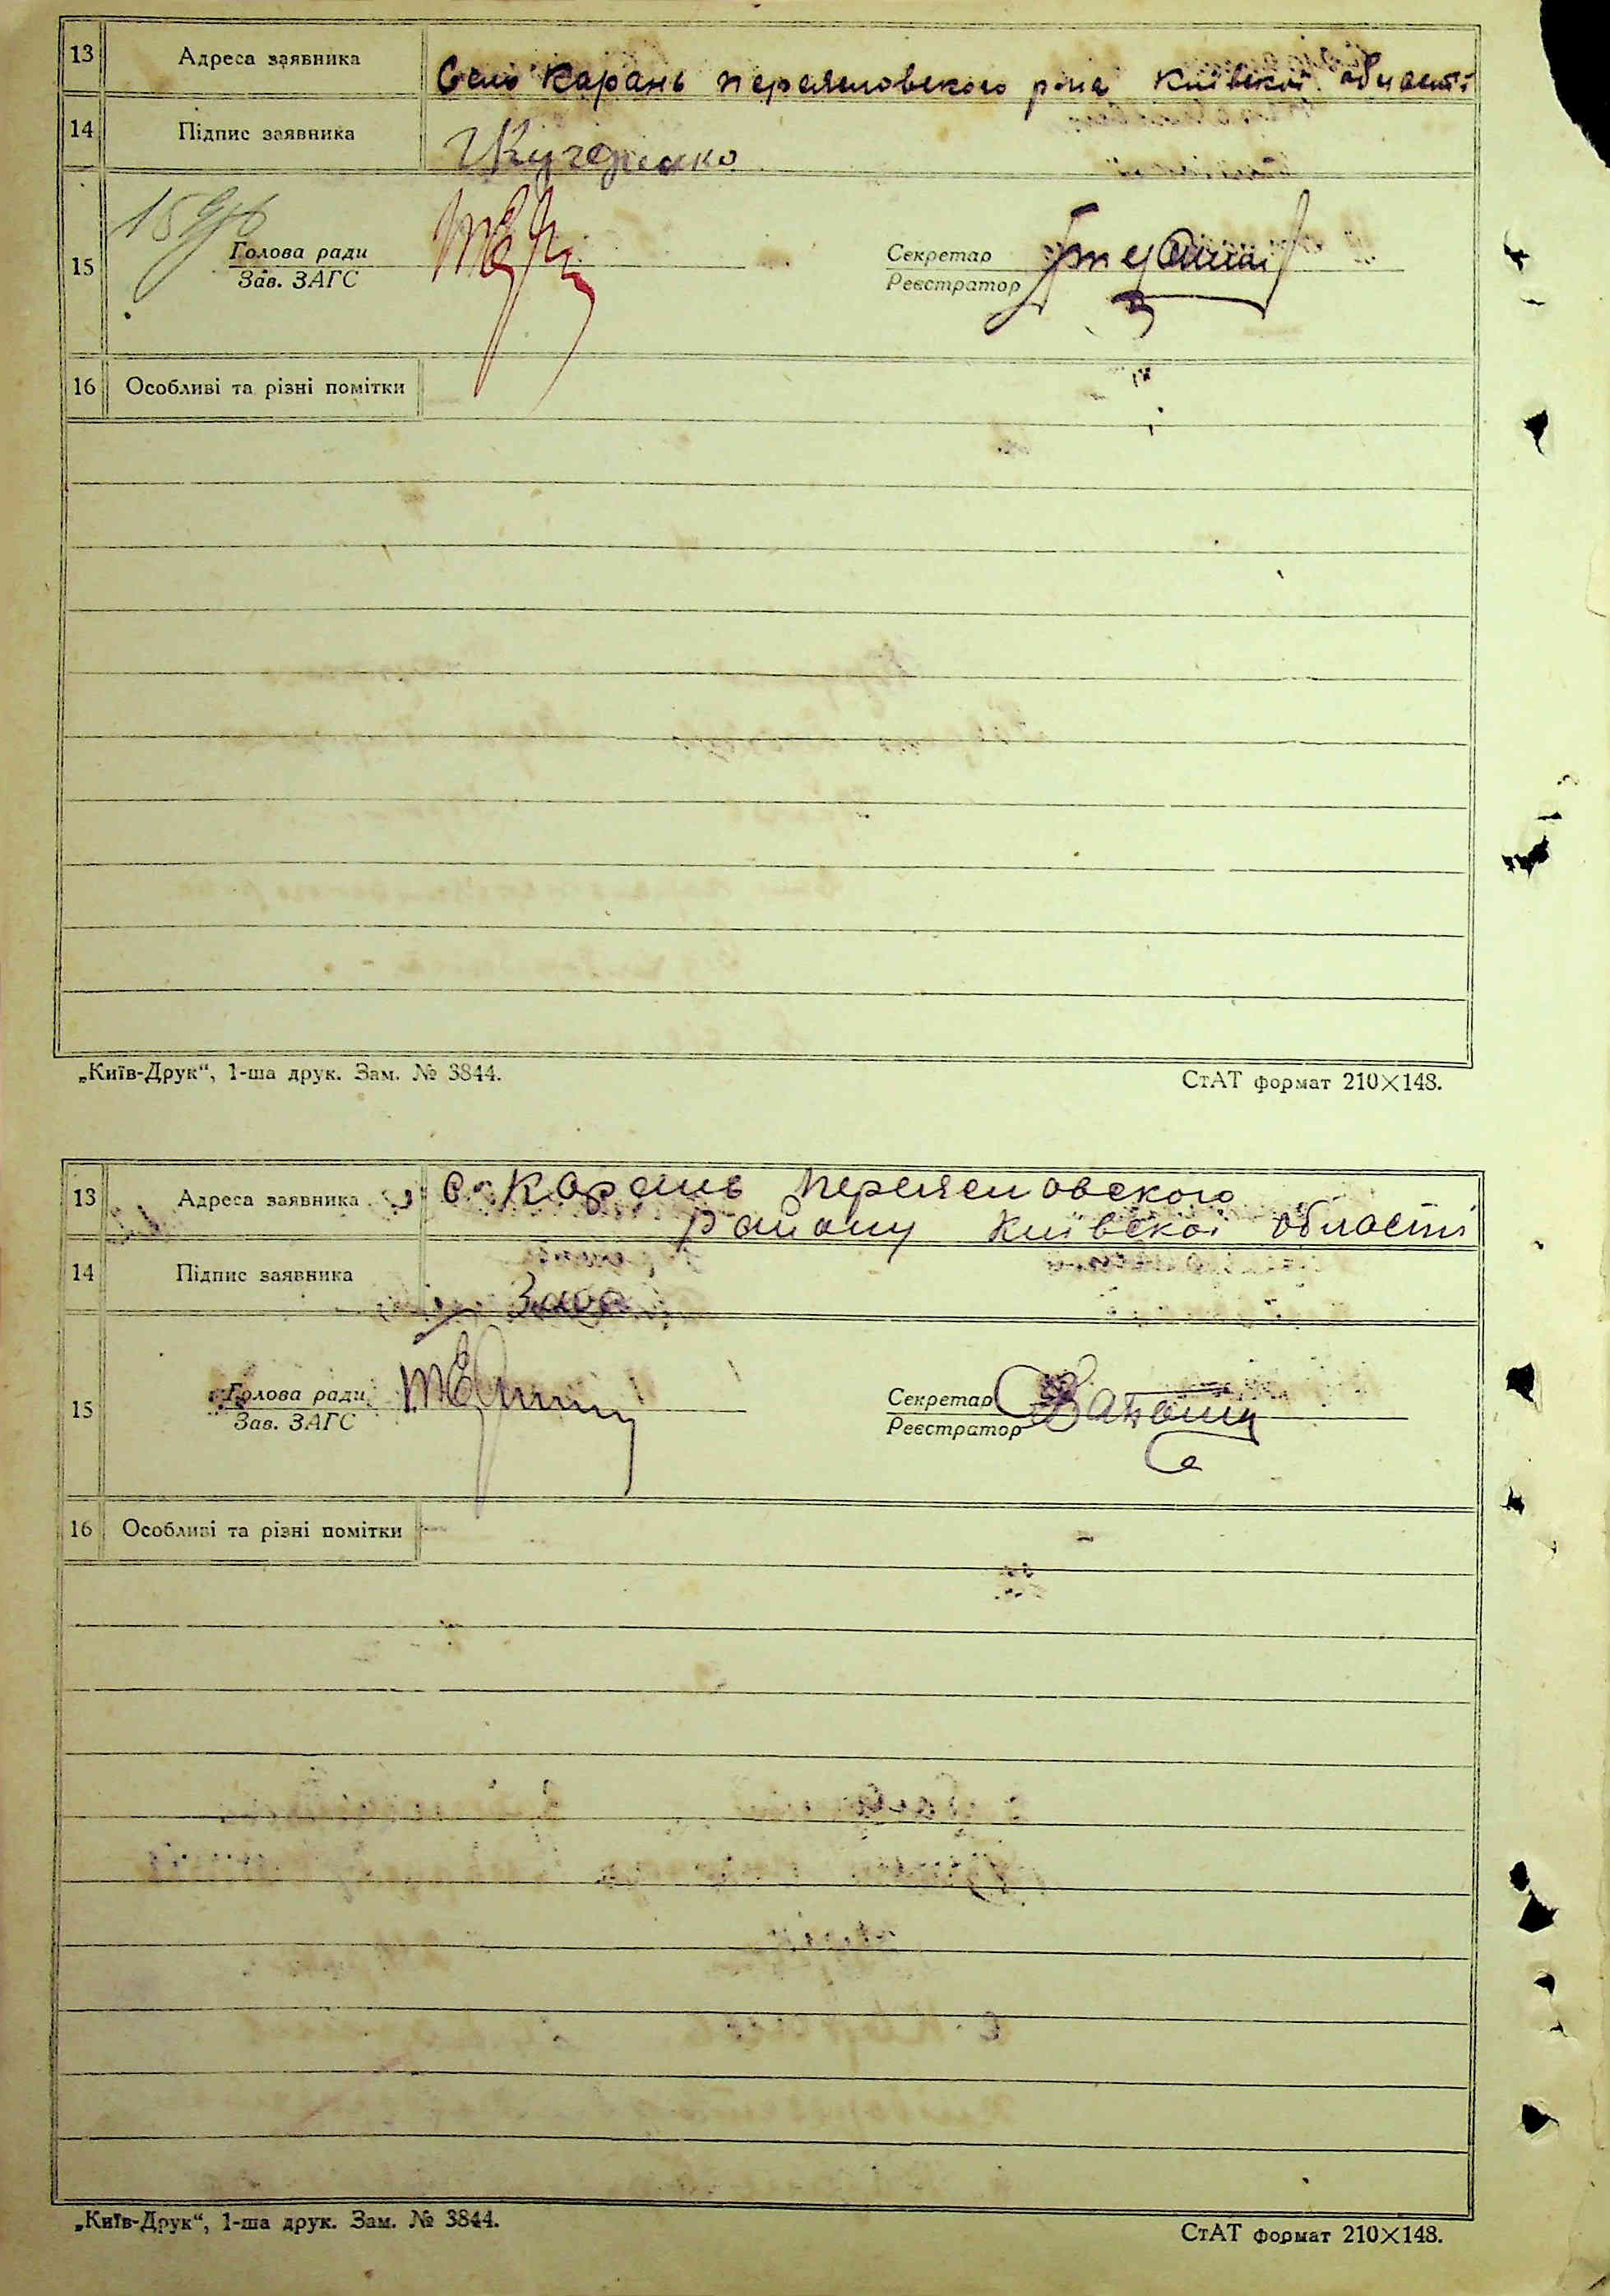 13 Адреса заявника Село Карань переясловского р-на Київской області
14 Підпис заявника
15 Голова ради Секретар
Зав. ЗАГС Реєстратор
16 Особливі та різні помітки
„Київ-Друк“, 1-ша друк. Зам. № 3844. СтАТ формат 210×148.
13 Адреса заявника с. Карань Переясловского
району Київскої області
14 Підпис заявника
15 Голова ради Секретар
Зав. ЗАГС Реєстратор
16 Особливі та різні помітки
„Київ-Друк“, 1-ша друк. Зам. № 3844. СтАТ формат 210×148.